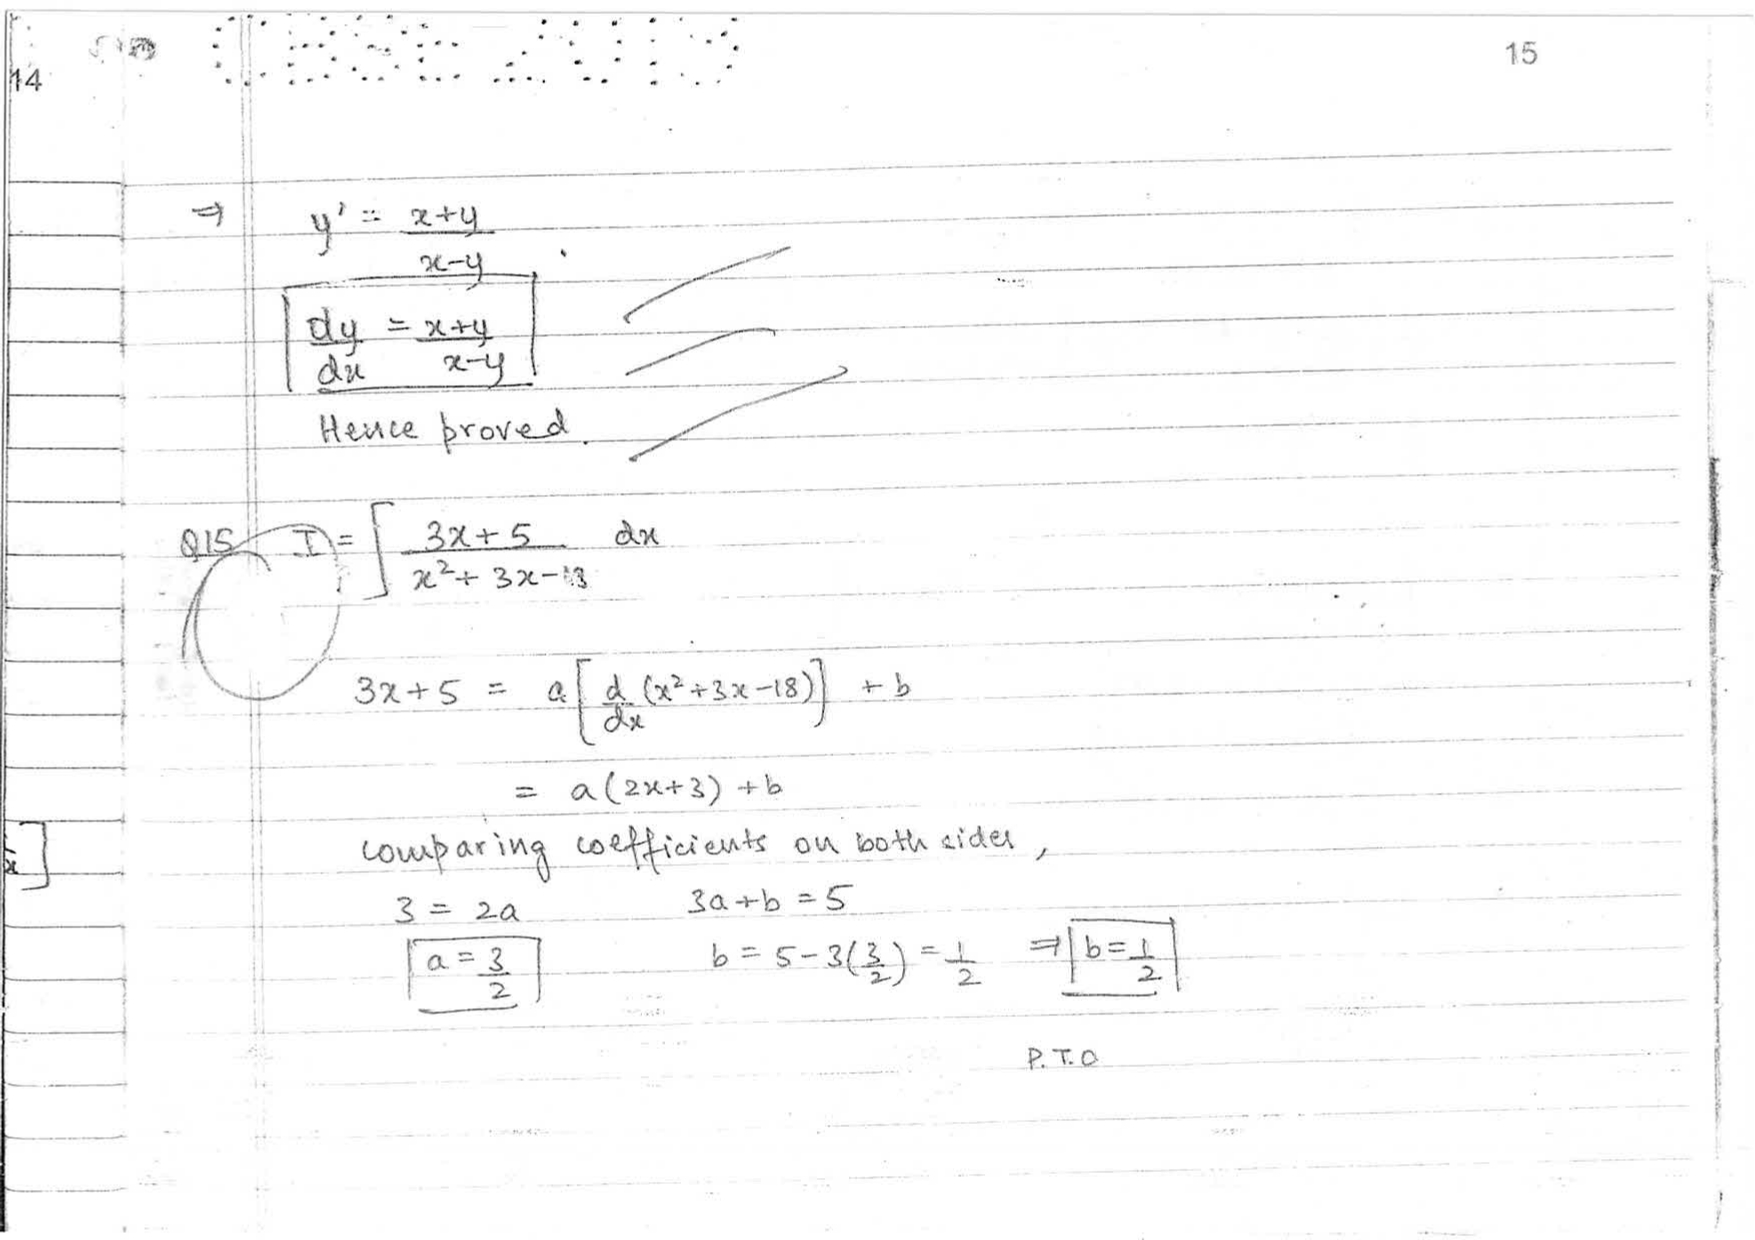 14
CBSE 2019
15
⇒ y' = x+y / x-y
dy/dx = x+y / x-y
Hence proved.
Q15 I = ∫ 3x+5 / x²+3x-18 dx
3x+5 = a[d/dx (x²+3x-18)] + b
= a(2x+3) +b
comparing coefficients on both sides,
3 = 2a 3a+b = 5
a = 3/2 b = 5-3(3/2) = 1/2 ⇒ b = 1/2
P.T.O